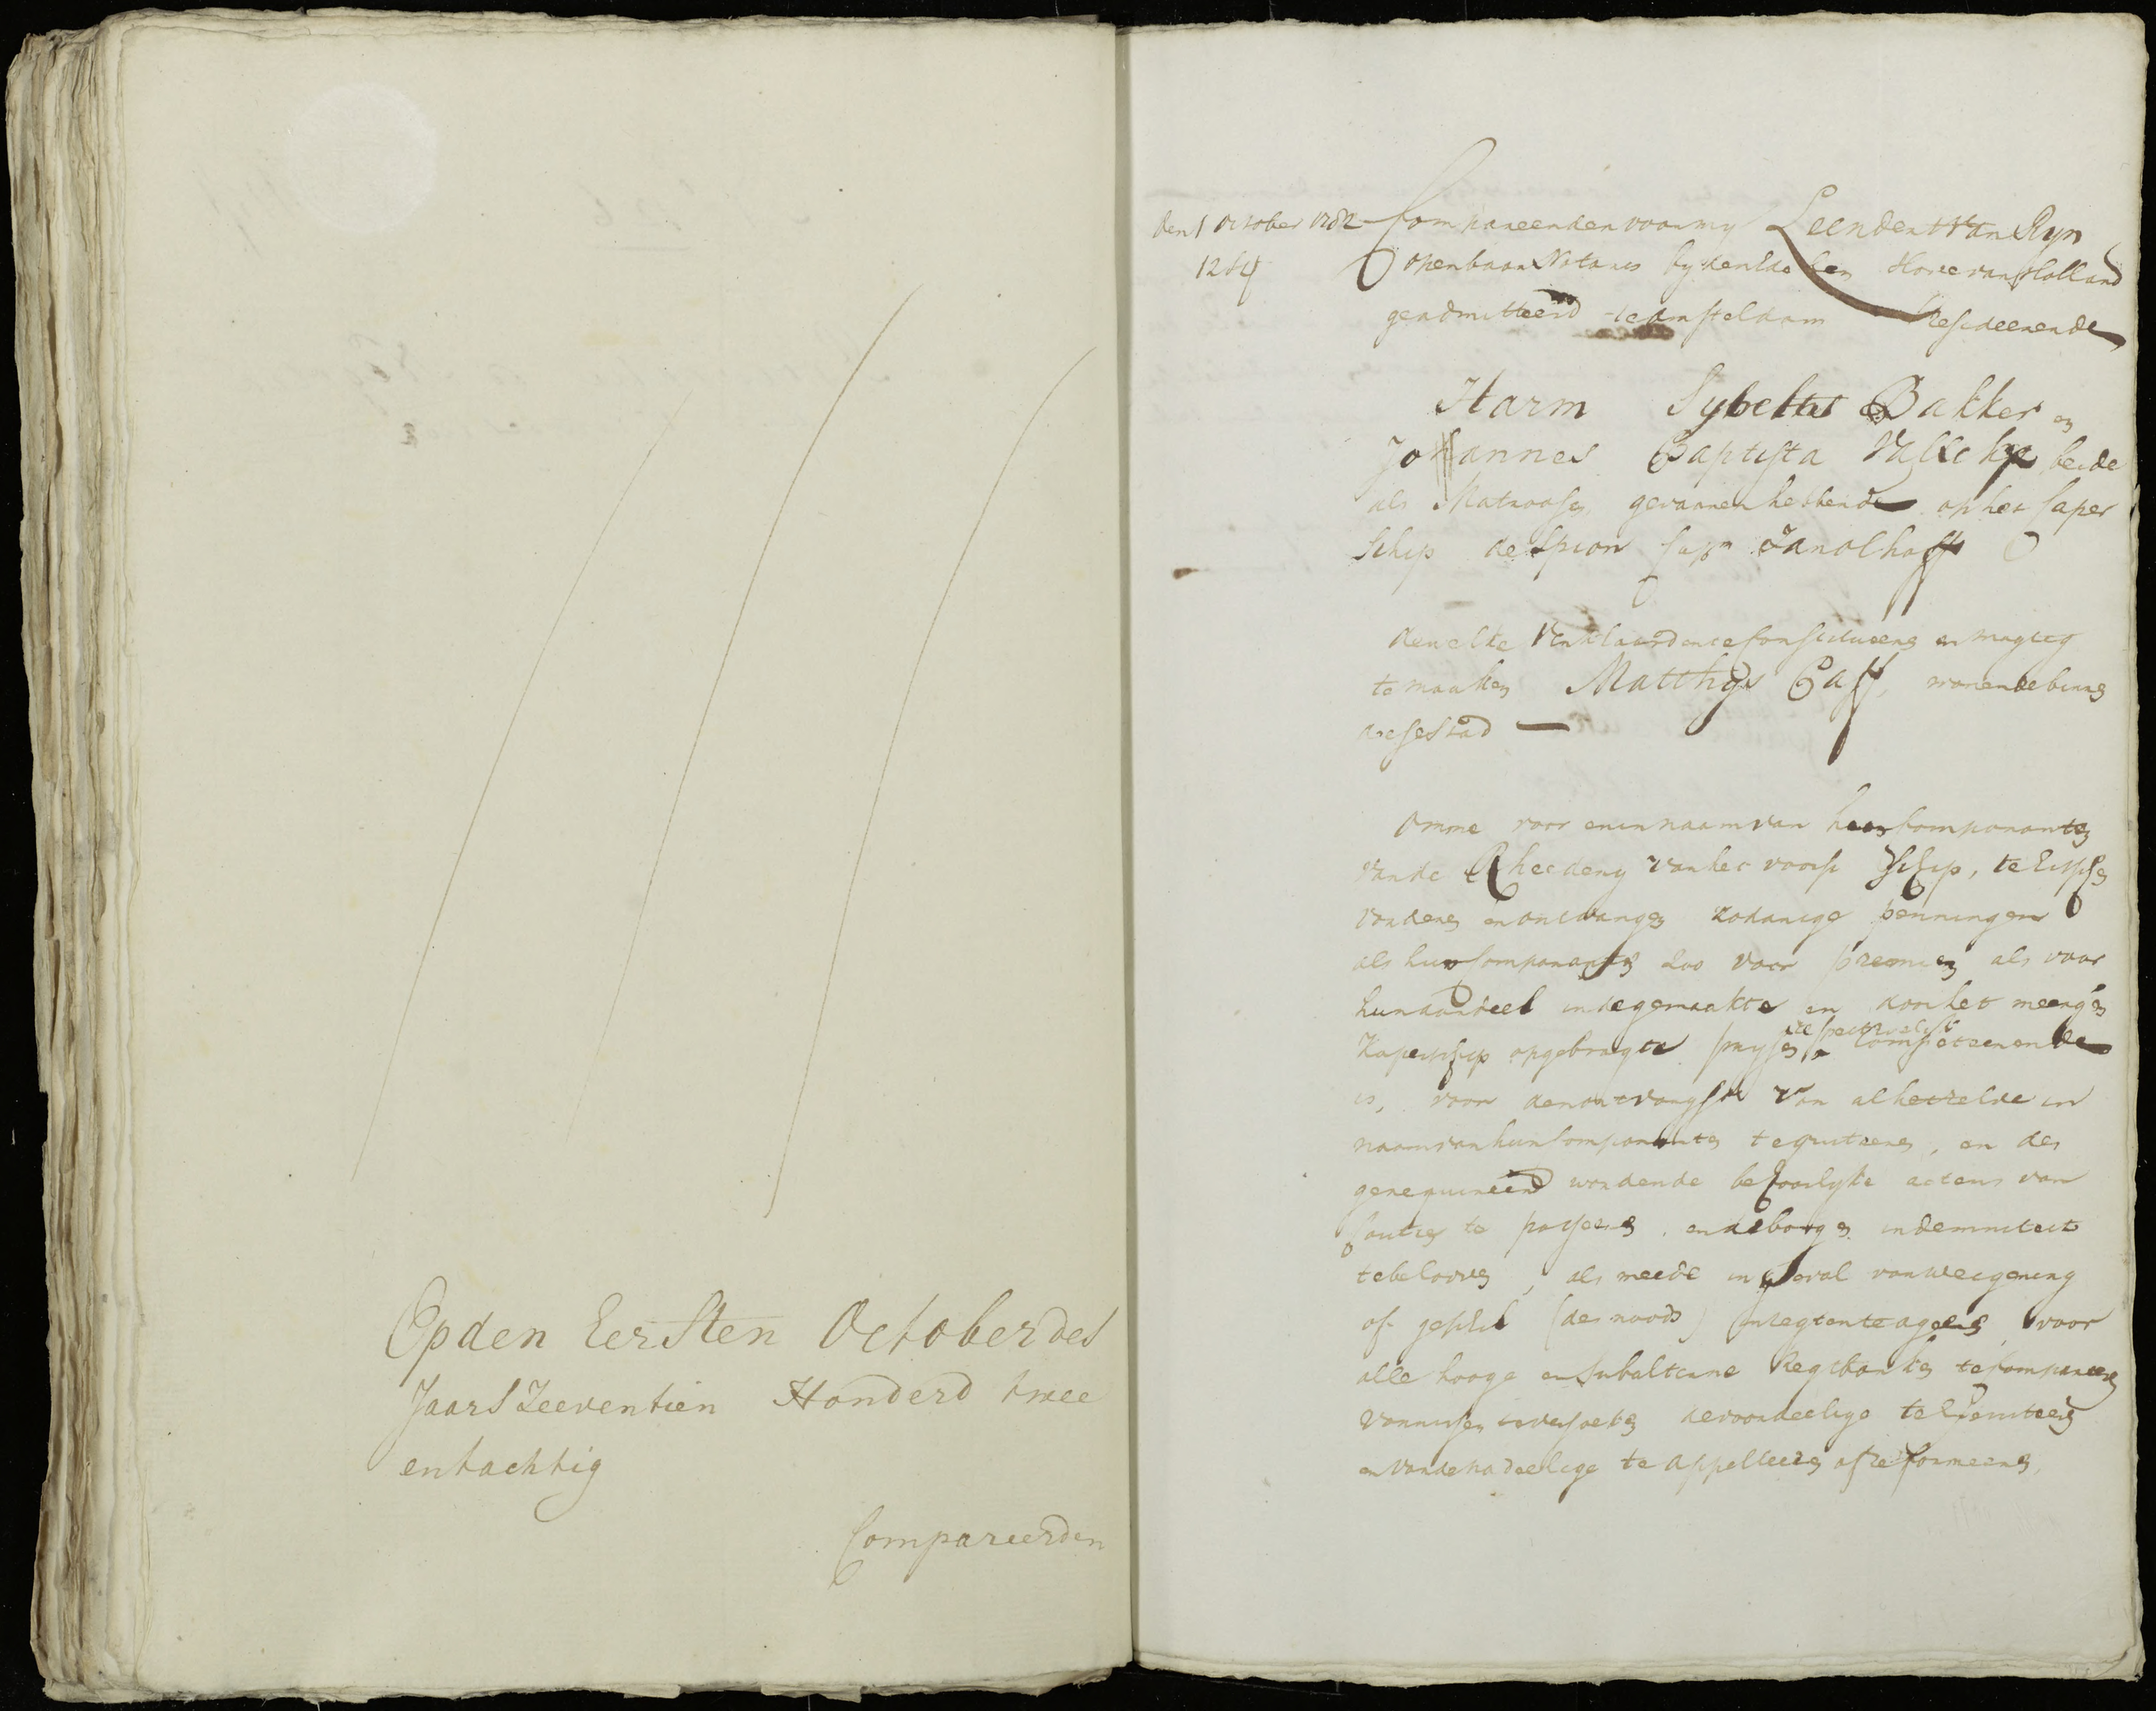 Op den Eersten October des
Jaars Zeeventien Honderd twee
entachtig
Compareerden
den 1 October 1782 Compareerden voor my Leendert van Ryn
1264 openbaar Notaris by den Ede Hove van Holland
geadmitteerd te Amsteldam Resideerende
Harm Sybelts Bakker en
Johannes Baptista beide
als Matroosen gevaaren hebbende op het Caper
Schip de Spion Capn Jan Olhoff
dewelke verklaarden te Constitueeren en magtig
te maaken Matthys Caff, wonende binnen
dese Stad
Omme voor en in naam van heer Comparanten
van de Rheedery van het voorsz Schip, te Eisschen
vorderen en ontvangen zodanige penningen
als hun Comparanten zoo voor premien als voor
hun aandeel in de gemaakte en door het meergen
Kaperschip opgebragte prysen respectivelyk Competeerende
is, voor den ontvangst van al hetzelve in
naam van hun Comparanten te quiteeren, en des
gerequireerd wordende behoorlyke actens van
Cautie te passeeren en de borgen indemniteit
te belooven, als meede in geval van weigering
of geschil (des noods) in regten te ageeren, voor
alle hooge en subalterne Regtbanken te Compareeren
vonnissen te versoeken de voordeelige te Executeeren
en van de nadeelige te appelleeren of reformeeren,